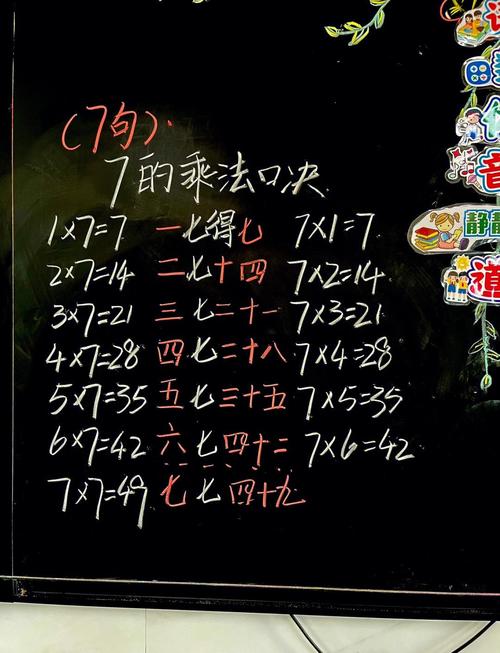 (7句).
7的乘法口决
1×7=7 一七得七 7×1=7
2×7=14 二七十四 7×2=14
3×7=21 三七二十一 7×3=21
4×7=28 四七二十八 7×4=28
5×7=35 五七三十五 7×5=35
6×7=42 六七四十二 7×6=42
7×7=49 七七四十九
音
静